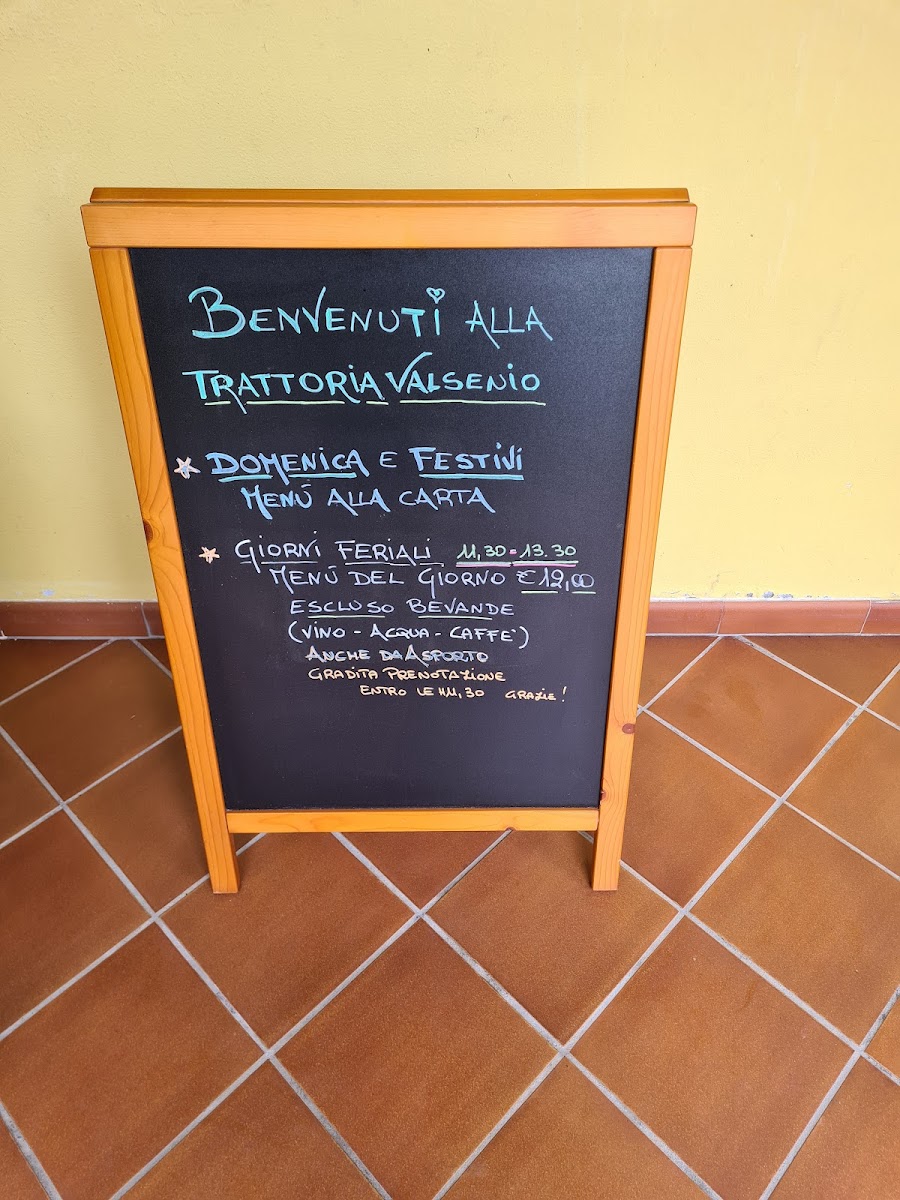 BENVENUTI ALLA
TRATTORIA VALSENIO
DOMENICA E FESTIVI
MENÚ ALLA CARTA
GIORNI FERIALI 11,30-13.30
MENÚ DEL GIORNO €12,00
ESCLUSO BEVANDE
(VINO - ACQUA - CAFFE')
ANCHE DA ASPORTO
GRADITA PRENOTAZIONE
ENTRO LE H11,30 GRAZIE!